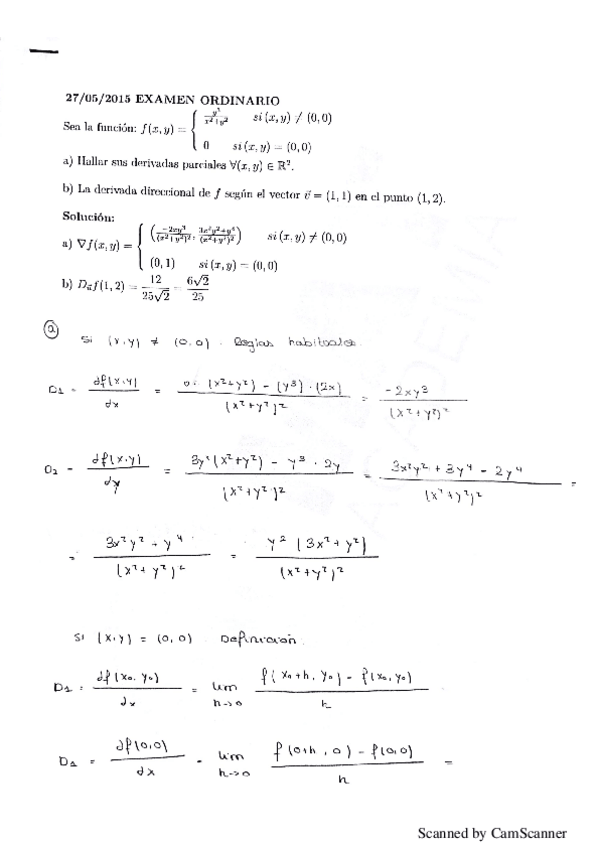 27/05/2015 EXAMEN ORDINARIO
Sea la función: f(x, y) = { y³/(x²+y²) si (x, y) ≠ (0, 0)
0 si (x, y) = (0, 0)
a) Hallar sus derivadas parciales ∀(x, y) ∈ ℝ².
b) La derivada direccional de f según el vector v⃗ = (1, 1) en el punto (1, 2).
Solución:
a) ∇f(x, y) = { (−2xy³/(x²+y²)², (3x²y²+y⁴)/(x²+y²)²) si (x, y) ≠ (0, 0)
(0, 1) si (x, y) = (0, 0)
b) D f(1, 2) = 12/(25√2) = 6√2/25
(a) Si (x,y) ≠ (0,0). Reglas habituales.
D1 = ∂f(x,y)/∂x = (0·(x²+y²) − (y³)·(2x))/(x²+y²)² = −2xy³/(x²+y²)²
D2 = ∂f(x,y)/∂y = (3y²(x²+y²) − y³·2y)/(x²+y²)² = (3x²y² + 3y⁴ − 2y⁴)/(x²+y²)² =
= (3x²y² + y⁴)/(x²+y²)² = y²(3x²+y²)/(x²+y²)²
Si (x,y) = (0,0). Definición.
D1 = ∂f(x₀,y₀)/∂x = lim h→0 (f(x₀+h, y₀) − f(x₀,y₀))/h
D1 = ∂f(0,0)/∂x = lim h→0 (f(0+h, 0) − f(0,0))/h =
Scanned by CamScanner